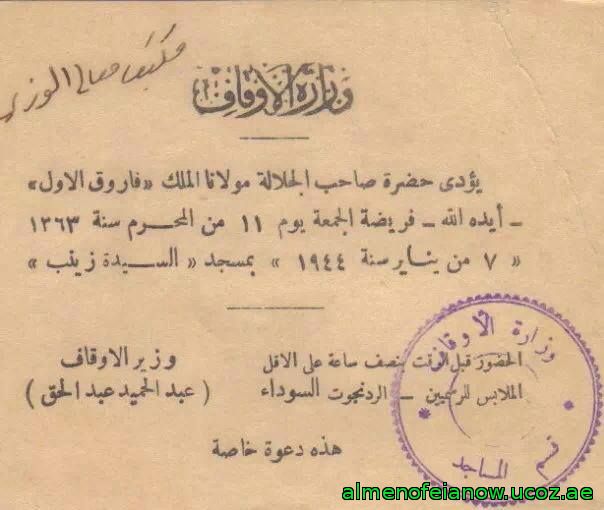 مكتب معالي الوزير
وزارة الأوقاف
يؤدى حضرة صاحب الجلالة مولانا الملك «فاروق الاول»
– أيده الله – فريضة الجمعة يوم ١١ من المحرم سنة ١٣٦٣
« ٧ من يناير سنة ١٩٤٤ » بمسجد « السيدة زينب »
الحضور قبل الوقت بنصف ساعة على الاقل
الملابس للرسميين – الردنجوت السوداء
وزير الاوقاف
( عبد الحميد عبد الحق )
هذه دعوة خاصة
وزارة الأوقاف
قسم المساجد
almenofeianow.ucoz.ae